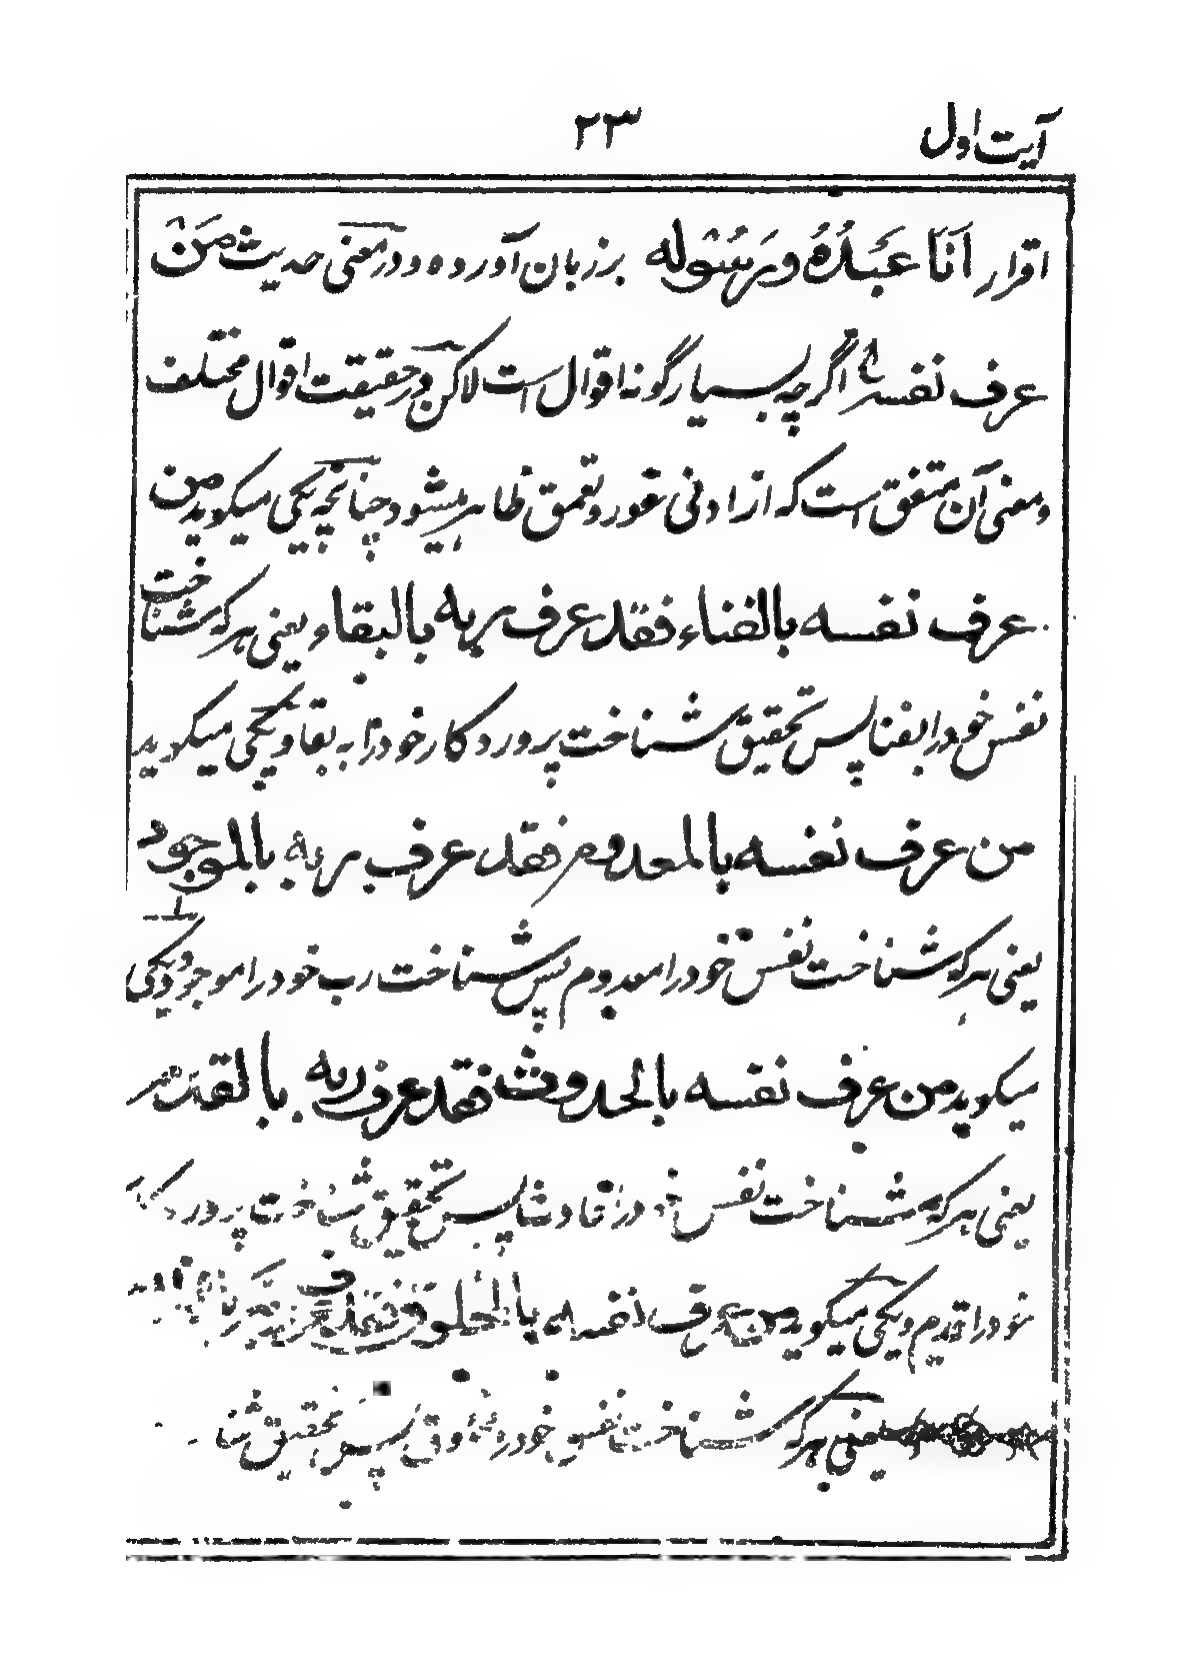 آیت اول
۲۳
اقرار اَنَا عَبْدُهُ وَرَسُوْلُه بر زبان آورده و در معنی حدیث مَنْ
عرف نفسه اگرچه بسیار گونه اقوال است لاکن در حقیقت اقوال مختلف
و معنی آن متفق است که از ادنی غور و تعمق ظاهر میشود چنانچه یکی میگوید من
عرف نفسه بالفناء فقد عرف ربه بالبقاء یعنی هرکه شناخت
نفس خود را بفنا پس تحقیق شناخت پروردگار خود را به بقا و یکی میگوید
من عرف نفسه بالمعدوم فقد عرف ربه بالموجود
یعنی هرکه شناخت نفس خود را معدوم پس شناخت رب خود را موجود و یکی
میگوید من عرف نفسه بالحدوث فقد عرف ربه بالقدم
یعنی هرکه شناخت نفس پس تحقیق شناخت
خود را قدیم و یکی میگوید من عرف نفسه بالمخلوق فقد عرف
یعنی هرکه شناخت نفس خود را مخلوق پس تحقیق شنا